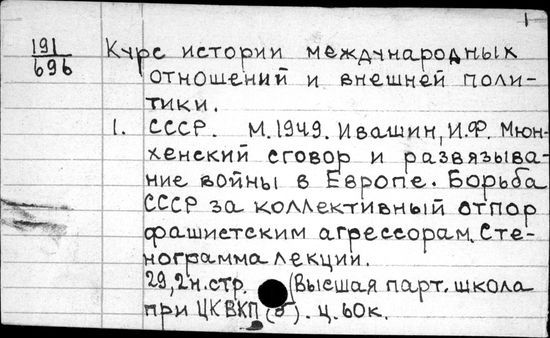 191
696
Курс истории международных
отношений и внешней поли-
тики.
1. СССР. М.1949. Ивашин, И.Ф. Мюн-
хенский сговор и развязыва-
ние войны в Европе. Борьба
СССР за коллективный отпор
фашистским агрессорам. Сте-
нограмма лекции.
29,2н.стр. (Высшая парт. школа
при ЦК ВКП(б). ц. 60к.